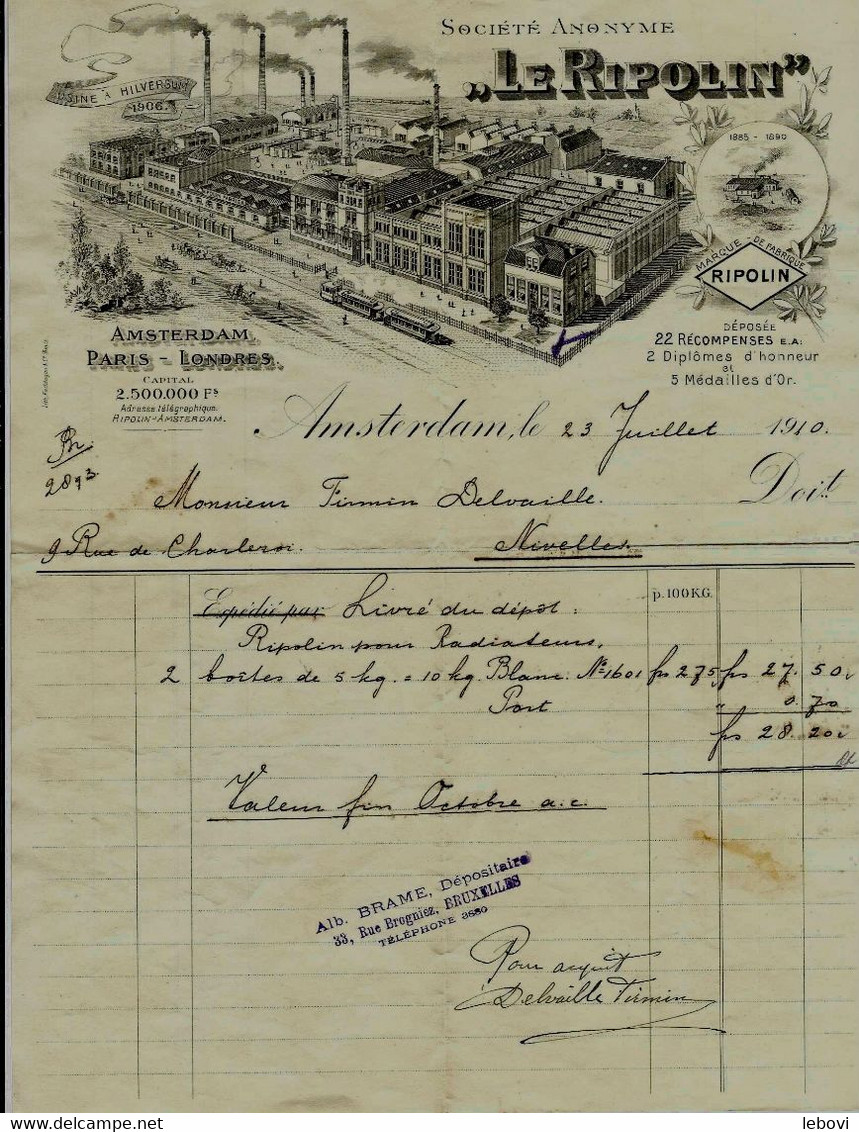 SOCIÉTÉ ANONYME
„LE RIPOLIN”
USINE À HILVERSUM
1906
1885 - 1890
MARQUE DE FABRIQUE
RIPOLIN
DÉPOSÉE
22 RÉCOMPENSES E.A:
2 Diplômes d'honneur
et
5 Médailles d'Or.
AMSTERDAM
PARIS - LONDRES.
CAPITAL
2.500.000 Fs
Adresse télégraphique.
RIPOLIN-AMSTERDAM.
Amsterdam, le 23 Juillet 1910.
Br.
2893
Monsieur Firmin Delvaille. Doit
9 Rue de Charleroi. Nivelles.
Expédié par Livré du dépôt: p. 100KG.
Ripolin pour Radiateurs,
2 boîtes de 5 kg. = 10 kg. Blanc. No 1601 frs 275, frs 27. 50
Port " 0. 70
frs 28. 20
Valeur fin Octobre a.c.
Alb. BRAME, Dépositaire
33, Rue Brogniez, BRUXELLES
TÉLÉPHONE 3680
Pour acquit
Delvaille Firmin
delcampe.net
lebovi